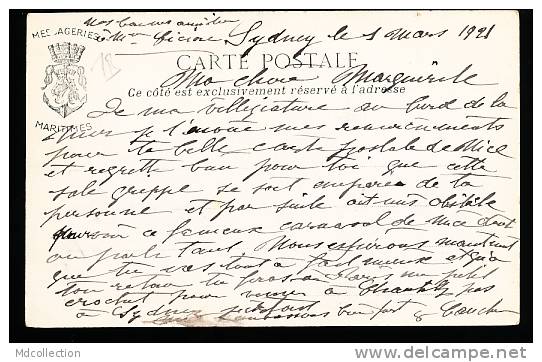 Mes bonnes amitiés
à Mme
Sydney le 1 Mars 1921
MESSAGERIES
MARITIMES
CARTE POSTALE
Ce côté est exclusivement réservé à l'adresse
Ma chère Marguerite
De ma villégiature au bord de la
mer je t'envoie mes remerciements
pour ta belle carte postale de Nice
et regrette bien pour toi que cette
sale grippe se soit emparée de ta
personne et par suite ait mis obstacle
ce fameux carnaval de Nice dont
on parle tant. Nous espérons maintenant
que tu vas tout à fait mieux et qu'à
ton retour tu feras un petit
crochet pour venir à pas
à Sydney surtout
bien fort
delcampe.net
MDCollection